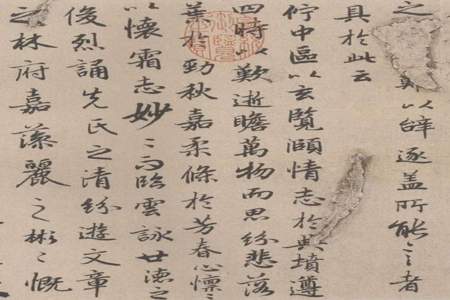 之難以辭逐盖所能言者
具於此云
佇中區以玄覽頤情志於典墳遵
四時以歎逝瞻萬物而思紛悲落
葉於勁秋嘉柔條於芳春心懍〻
以懷霜志妙〻而臨雲詠世德之
俊烈誦先民之清紛遊文章
之林府嘉藻麗之彬〻慨